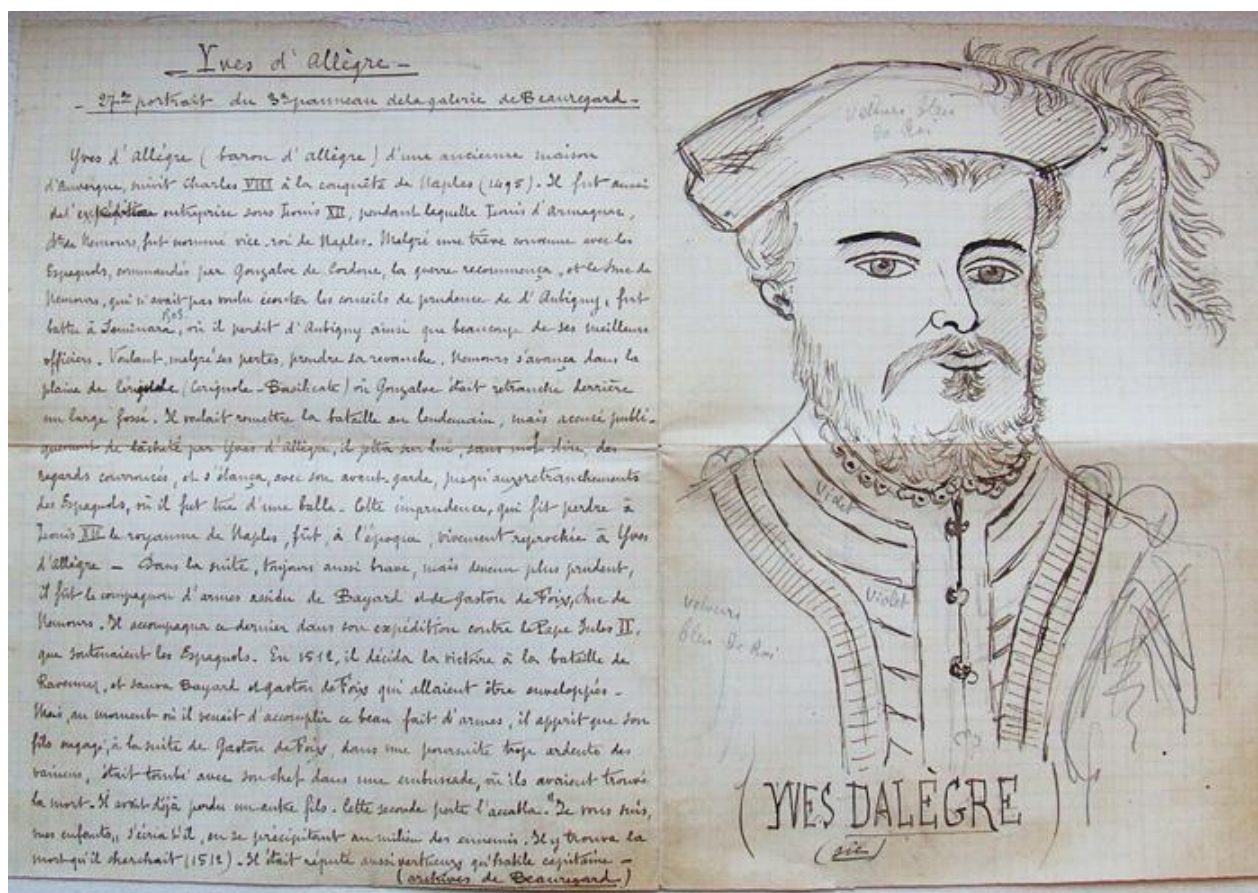 Yves d'Allègre -
- 27me portrait du 3e panneau de la galerie de Beauregard -
Yves d'Allègre (baron d'Allègre) d'une ancienne maison
d'Auvergne, suivit Charles VIII à la conquête de Naples (1495). Il fut aussi
de l'expédition entreprise sous Louis XII, pendant laquelle Louis d'Armagnac,
de Nemours, fut nommé vice-roi de Naples. Malgré une trêve convenue avec les
Espagnols, commandés par Gonzalve de Cordoue, la guerre recommença, et le Duc de
Nemours, qui n'avait pas voulu écouter les conseils de prudence de d'Aubigny, fut
battu à Séminara, où il perdit d'Aubigny ainsi que beaucoup de ses meilleurs
officiers. Voulant, malgré ses pertes, prendre sa revanche, Nemours s'avança dans la
plaine de (Cerignole - Basilicate) où Gonzalve était retranché derrière
un large fossé. Il voulait remettre la bataille au lendemain, mais accusé publi-
quement de lâcheté par Yves d'Allègre, il jetta sur lui, sans mot dire, des
regards courroucés, et s'élança, avec son avant-garde, jusqu'aux retranchements
des Espagnols, où il fut tué d'une balle. Cette imprudence, qui fit perdre à
Louis XII le royaume de Naples, fût, à l'époque, vivement reprochée à Yves
d'Allègre - Dans la suite, toujours aussi brave, mais devenu plus prudent,
il fût le compagnon d'armes assidu de Bayard et de Gaston de Foix, Duc de
Nemours. Il accompagna ce dernier dans son expédition contre le Pape Jules II,
que soutenaient les Espagnols. En 1512, il décida la victoire à la bataille de
Ravennes, et sauva Bayard et Gaston de Foix qui allaient être enveloppés -
Mais, au moment où il venait d'accomplir ce beau fait d'armes, il apprit que son
fils engagé, à la suite de Gaston de Foix, dans une poursuite trop ardente des
vaincus, était tombé avec son chef dans une embuscade, où ils avaient trouvé
la mort. Il avait déjà perdu un autre fils. Cette seconde perte l'accabla. "Je vous suis,
mes enfants,, s'écria t'il, en se précipitant au milieu des ennemis. Il y trouva la
mort qu'il cherchait (1512). Il était réputé aussi vertueux qu'habile capitaine -
(archives de Beauregard)
Velours bleu
de Roi
Violet
Violet
Velours
bleu de Roi
(YVES DALÈGRE)
(sic)